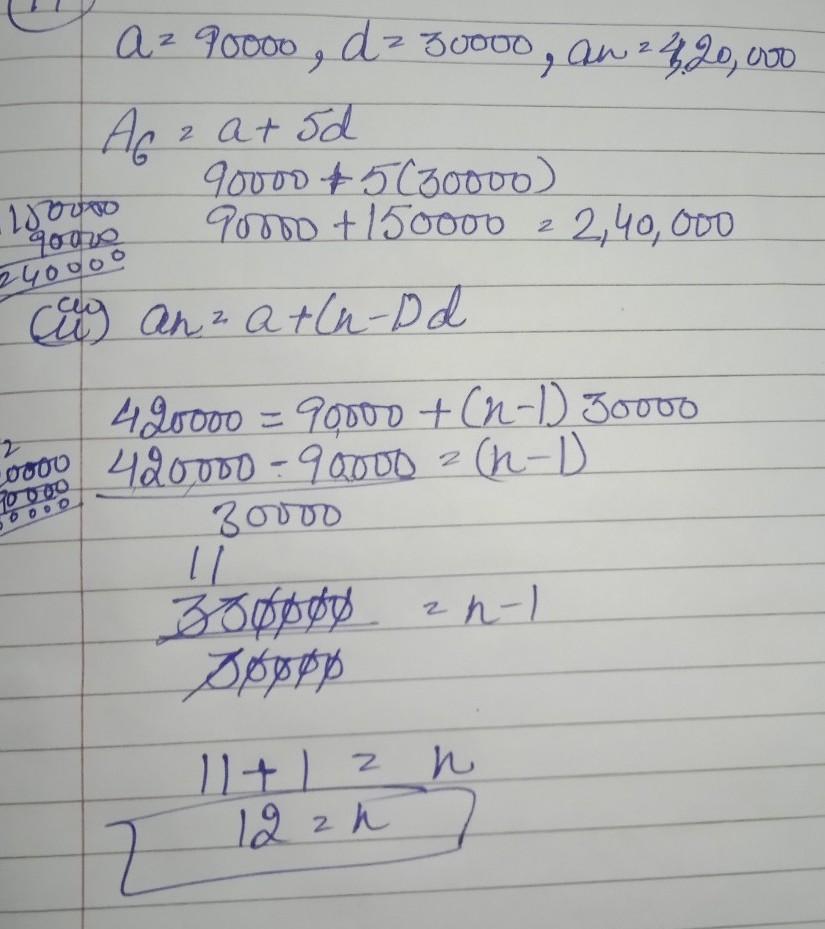 a = 90000, d = 30000, an = 4,20,000
A6 = a + 5d
90000 + 5(30000)
150000
90000
240000
90000 + 150000 = 2,40,000
(ii) an = a + (n-1)d
420000 = 90,000 + (n-1) 30000
2
0000
90000
0000
420,000 - 90,000 = (n-1)
30000
11
330000 = n-1
30000
11 + 1 = n
12 = n